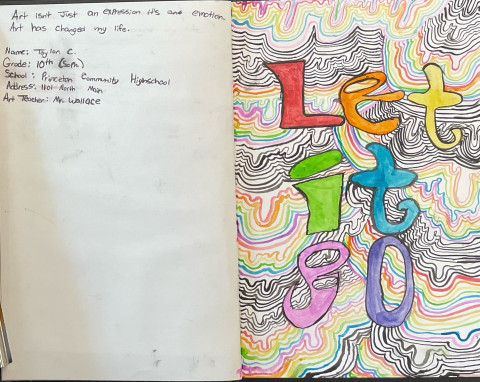 Art isn't just an expression it's and emotion.
Art has changed my life.
Name: Taylon C.
Grade: 10th (Soph)
School: Princeton Community Highschool
Address: 1101 North Main
Art Teacher: Mr. Wallace
Let
it
go